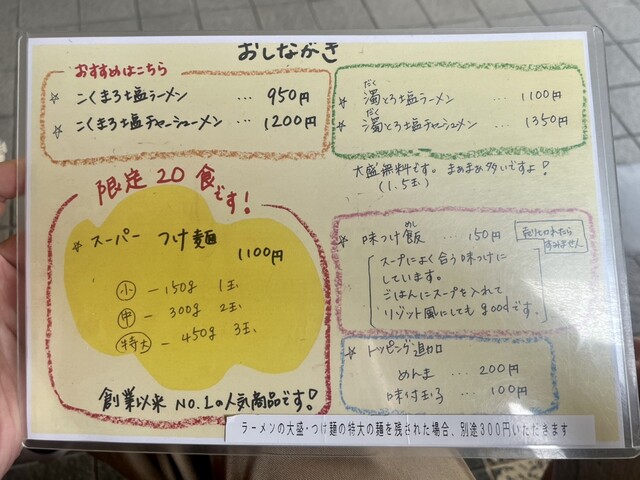 おしながき
おすすめはこちら
☆ こくまろ塩ラーメン … 950円
☆ こくまろ塩チャーシューメン … 1200円
だく
☆ 濁とろ塩ラーメン … 1100円
だく
☆ 濁とろ塩チャーシューメン … 1350円
大盛無料です。まぁまぁ多いですよ!
(1.5玉)
限定20食です!
☆ スーパーつけ麺
1100円
小 ー 150g 1玉
中 ー 300g 2玉
特大 ー 450g 3玉
創業以来 NO.1の人気商品です!
めし
☆ 味つけ飯 … 150円
売り切れたら
すみません
スープによく合う味つけに
しています。
ごはんにスープを入れて
リゾット風にしてもgoodです。
☆ トッピング追加
めんま … 200円
味付玉子 … 100円
ラーメンの大盛・つけ麺の特大の麺を残された場合、別途300円いただきます